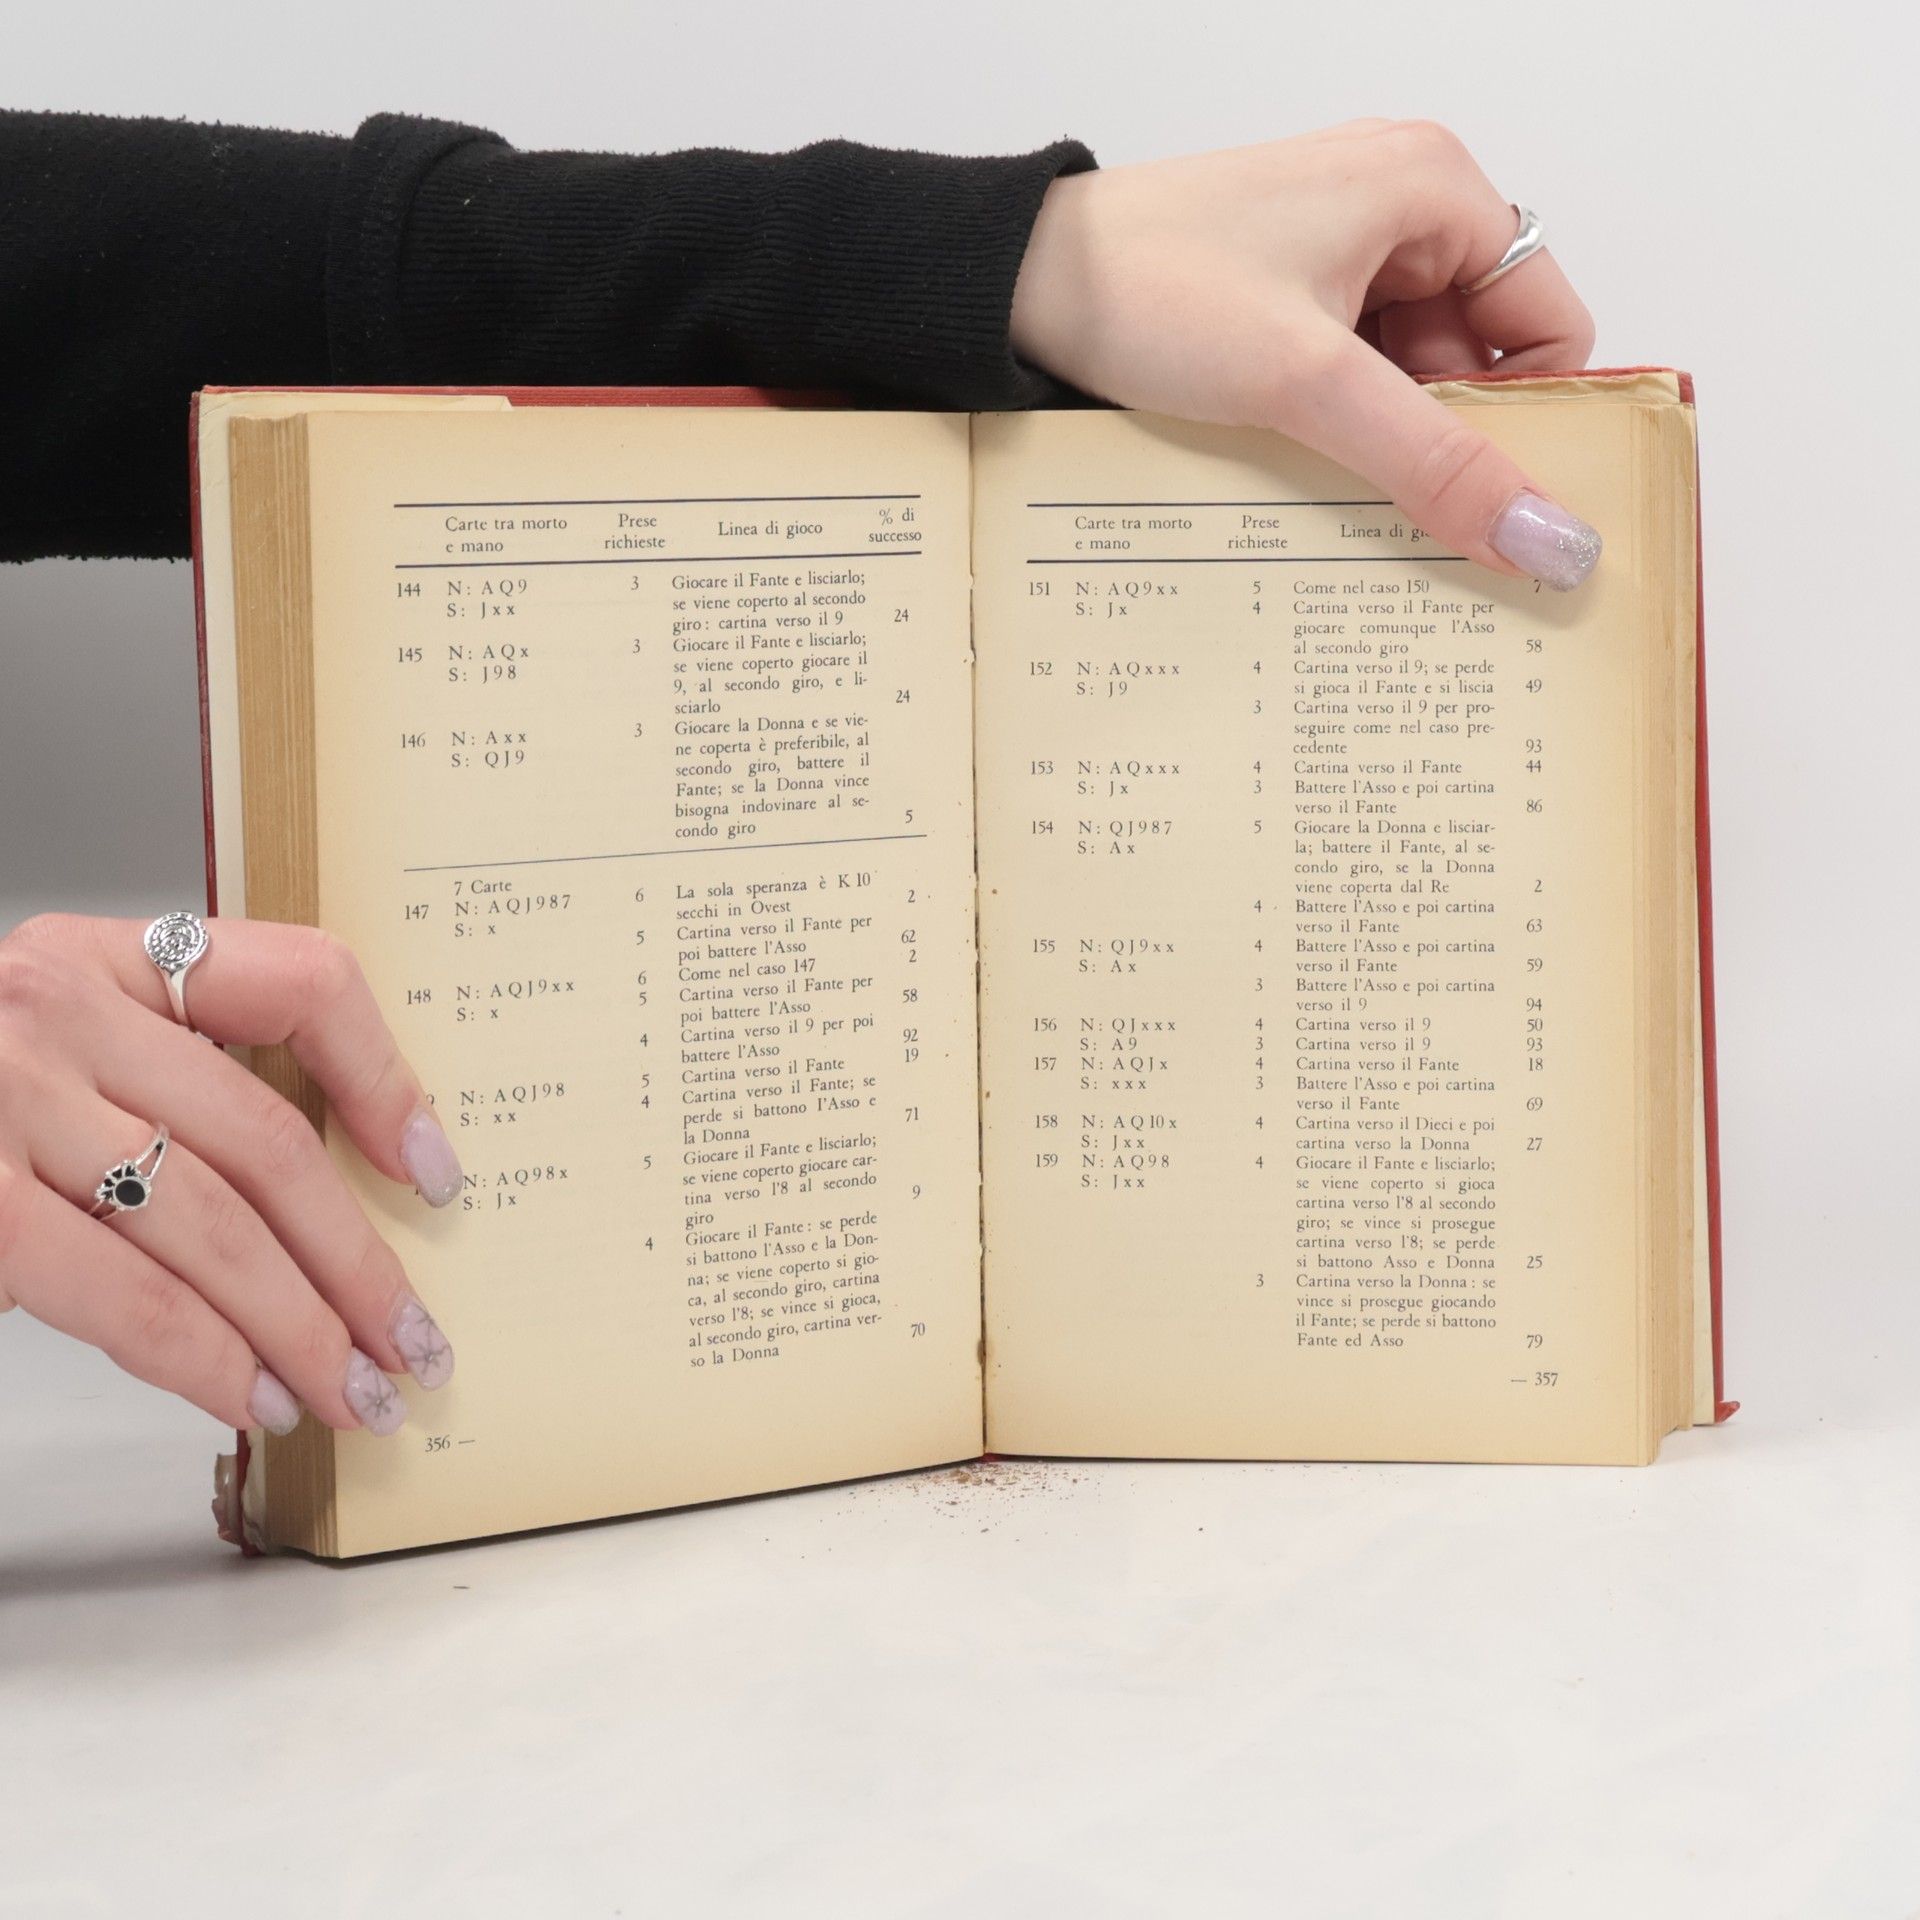 Carte tra morto e mano Prese richieste Linea di gioco % di successo
144 N: A Q 9 3 Giocare il Fante e lisciarlo;
S: J x x se viene coperto al secondo
giro: cartina verso il 9 24
145 N: A Q x 3 Giocare il Fante e lisciarlo;
S: J 9 8 se viene coperto giocare il
9, al secondo giro, e li-
sciarlo 24
146 N: A x x 3 Giocare la Donna e se vie-
S: Q J 9 ne coperta è preferibile, al
secondo giro, battere il
Fante; se la Donna vince
bisogna indovinare al se-
condo giro 5
7 Carte
147 N: A Q J 9 8 7 6 La sola speranza è K 10
S: x secchi in Ovest 2
5 Cartina verso il Fante per
poi battere l'Asso 62
148 N: A Q J 9 x x 6 Come nel caso 147 2
S: x 5 Cartina verso il Fante per
poi battere l'Asso 58
4 Cartina verso il 9 per poi
battere l'Asso 92
N: A Q J 9 8 5 Cartina verso il Fante 19
S: x x 4 Cartina verso il Fante; se
perde si battono l'Asso e
la Donna 71
N: A Q 9 8 x 5 Giocare il Fante e lisciarlo;
S: J x se viene coperto giocare car-
tina verso l'8 al secondo
giro 9
4 Giocare il Fante: se perde
si battono l'Asso e la Don-
na; se viene coperto si gio-
ca, al secondo giro, cartina
verso l'8; se vince si gioca,
al secondo giro, cartina ver-
so la Donna 70
356 —
Carte tra morto e mano Prese richieste Linea di
151 N: A Q 9 x x 5 Come nel caso 150 7
S: J x 4 Cartina verso il Fante per
giocare comunque l'Asso
al secondo giro 58
152 N: A Q x x x 4 Cartina verso il 9; se perde
S: J 9 si gioca il Fante e si liscia 49
3 Cartina verso il 9 per pro-
seguire come nel caso pre-
cedente 93
153 N: A Q x x x 4 Cartina verso il Fante 44
S: J x 3 Battere l'Asso e poi cartina
verso il Fante 86
154 N: Q J 9 8 7 5 Giocare la Donna e lisciar-
S: A x la; battere il Fante, al se-
condo giro, se la Donna
viene coperta dal Re 2
4 Battere l'Asso e poi cartina
verso il Fante 63
155 N: Q J 9 x x 4 Battere l'Asso e poi cartina
S: A x verso il Fante 59
3 Battere l'Asso e poi cartina
verso il 9 94
156 N: Q J x x x 4 Cartina verso il 9 50
S: A 9 3 Cartina verso il 9 93
157 N: A Q J x 4 Cartina verso il Fante 18
S: x x x 3 Battere l'Asso e poi cartina
verso il Fante 69
158 N: A Q 10 x 4 Cartina verso il Dieci e poi
S: J x x cartina verso la Donna 27
159 N: A Q 9 8 4 Giocare il Fante e lisciarlo;
S: J x x se viene coperto si gioca
cartina verso l'8 al secondo
giro; se vince si prosegue
cartina verso l'8; se perde
si battono Asso e Donna 25
3 Cartina verso la Donna: se
vince si prosegue giocando
il Fante; se perde si battono
Fante ed Asso 79
— 357